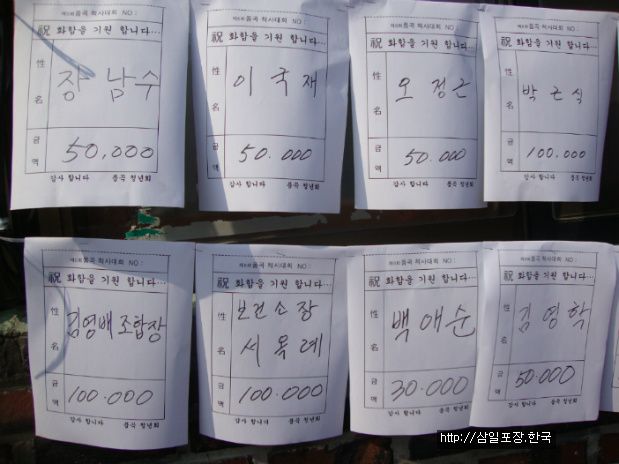 제6회품곡 척사대회 NO :
祝 화합을 기원 합니다...
성명 장남수
금액 50,000
감사 합니다 품곡 청년회
제6회품곡 척사대회 NO :
祝 화합을 기원 합니다...
성명 이국재
금액 50.000
감사 합니다 품곡 청년회
제6회품곡 척사대회 NO :
祝 화합을 기원 합니다...
성명 오정근
금액 50.000
감사 합니다 품곡 청년회
제6회품곡 척사대회 NO :
祝 화합을 기원 합니다...
성명 박근식
금액 100.000
감사 합니다 품곡 청년회
제6회품곡 척사대회 NO :
祝 화합을 기원 합니다...
성명 김영배조합장
금액 100.000
감사 합니다 품곡 청년회
제6회품곡 척사대회 NO :
祝 화합을 기원 합니다...
성명 보건소장
서옥례
금액 100.000
감사 합니다 품곡 청년회
제6회품곡 척사대회 NO :
祝 화합을 기원 합니다...
성명 백애순
금액 30.000
감사 합니다 품곡 청년회
제6회품곡 척사대회 NO :
祝 화합을 기원 합니다...
성명 김영학
금액 50.000
감사 합니다 품곡 청년회
http://삼일포장.한국